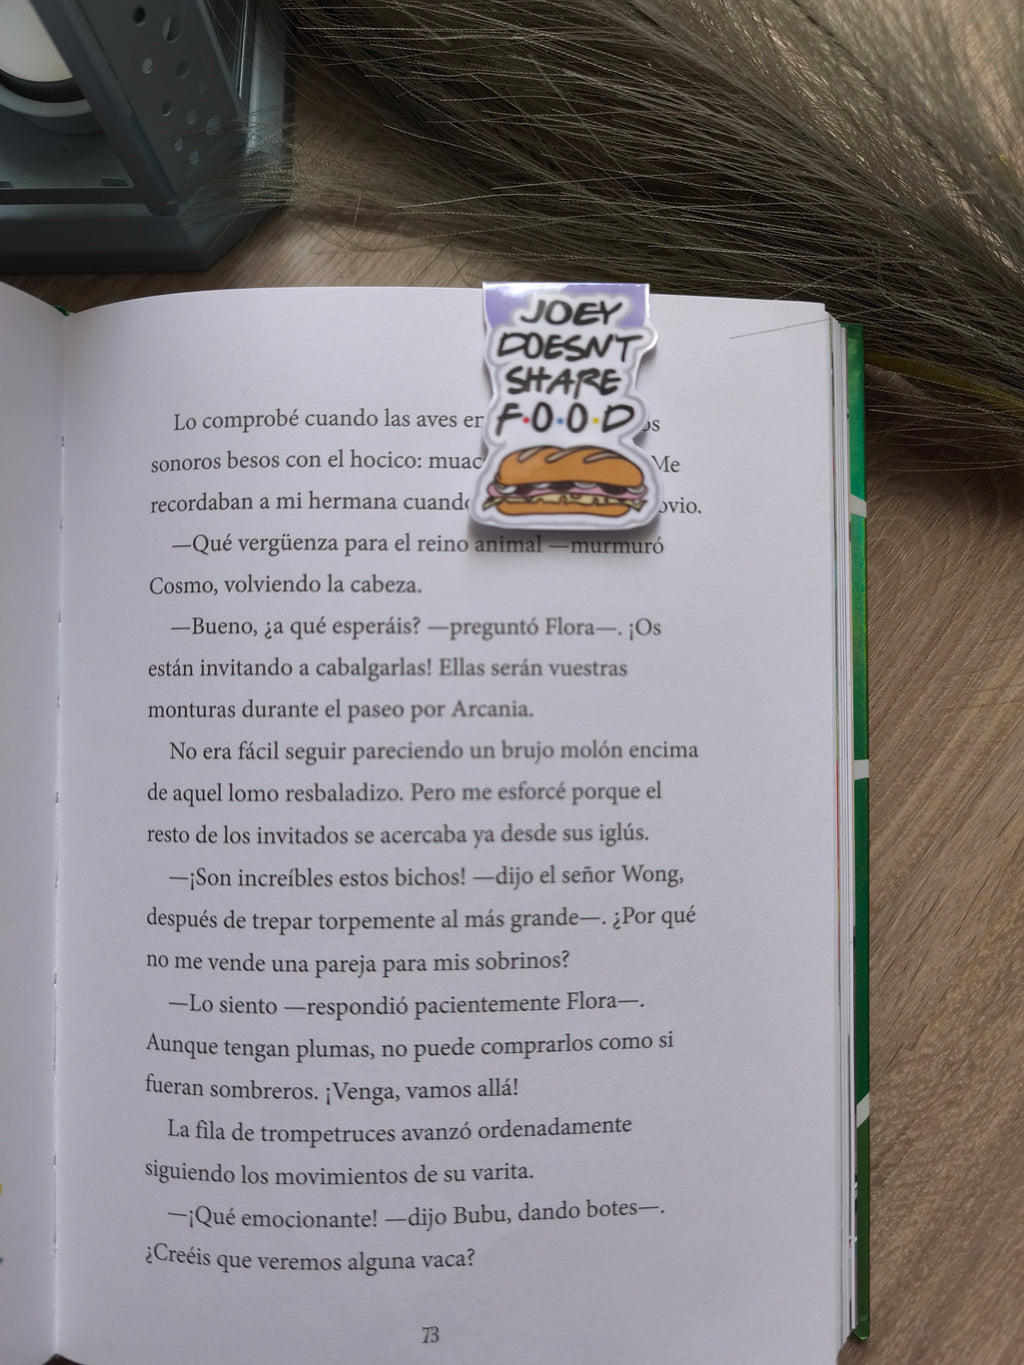 JOEY
DOESN'T
SHARE
F·O·O·D
Lo comprobé cuando las aves
sonoros besos con el hocico: Me
recordaban a mi hermana
—Qué vergüenza para el reino animal —murmuró
Cosmo, volviendo la cabeza.
—Bueno, ¿a qué esperáis? —preguntó Flora—. ¡Os
están invitando a cabalgarlas! Ellas serán vuestras
monturas durante el paseo por Arcania.
No era fácil seguir pareciendo un brujo molón encima
de aquel lomo resbaladizo. Pero me esforcé porque el
resto de los invitados se acercaba ya desde sus iglús.
—¡Son increíbles estos bichos! —dijo el señor Wong,
después de trepar torpemente al más grande—. ¿Por qué
no me vende una pareja para mis sobrinos?
—Lo siento —respondió pacientemente Flora—.
Aunque tengan plumas, no puede comprarlos como si
fueran sombreros. ¡Venga, vamos allá!
La fila de trompetruces avanzó ordenadamente
siguiendo los movimientos de su varita.
—¡Qué emocionante! —dijo Bubu, dando botes—.
¿Creéis que veremos alguna vaca?
73